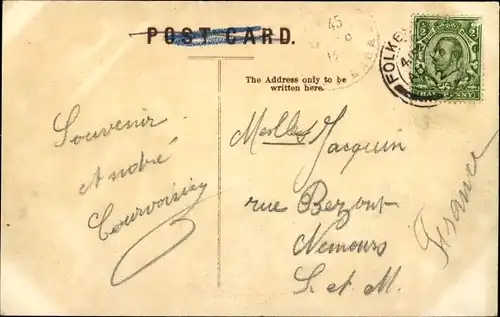 POST CARD.
The Address only to be
written here.
Souvenir
André
Courvoisier
Melles Jacquin
rue Bezout
Nemours
S. et M.
France
FOLKE
45
HALFPENNY